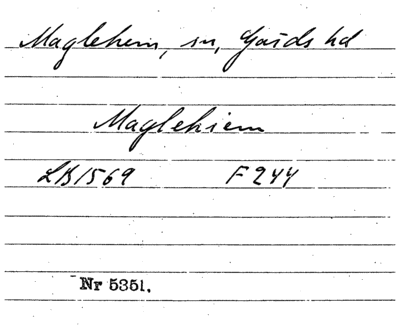 Maglehem, sn, Gärds hd
Maglehiem
LB 1569 F 244
Nr 5351.